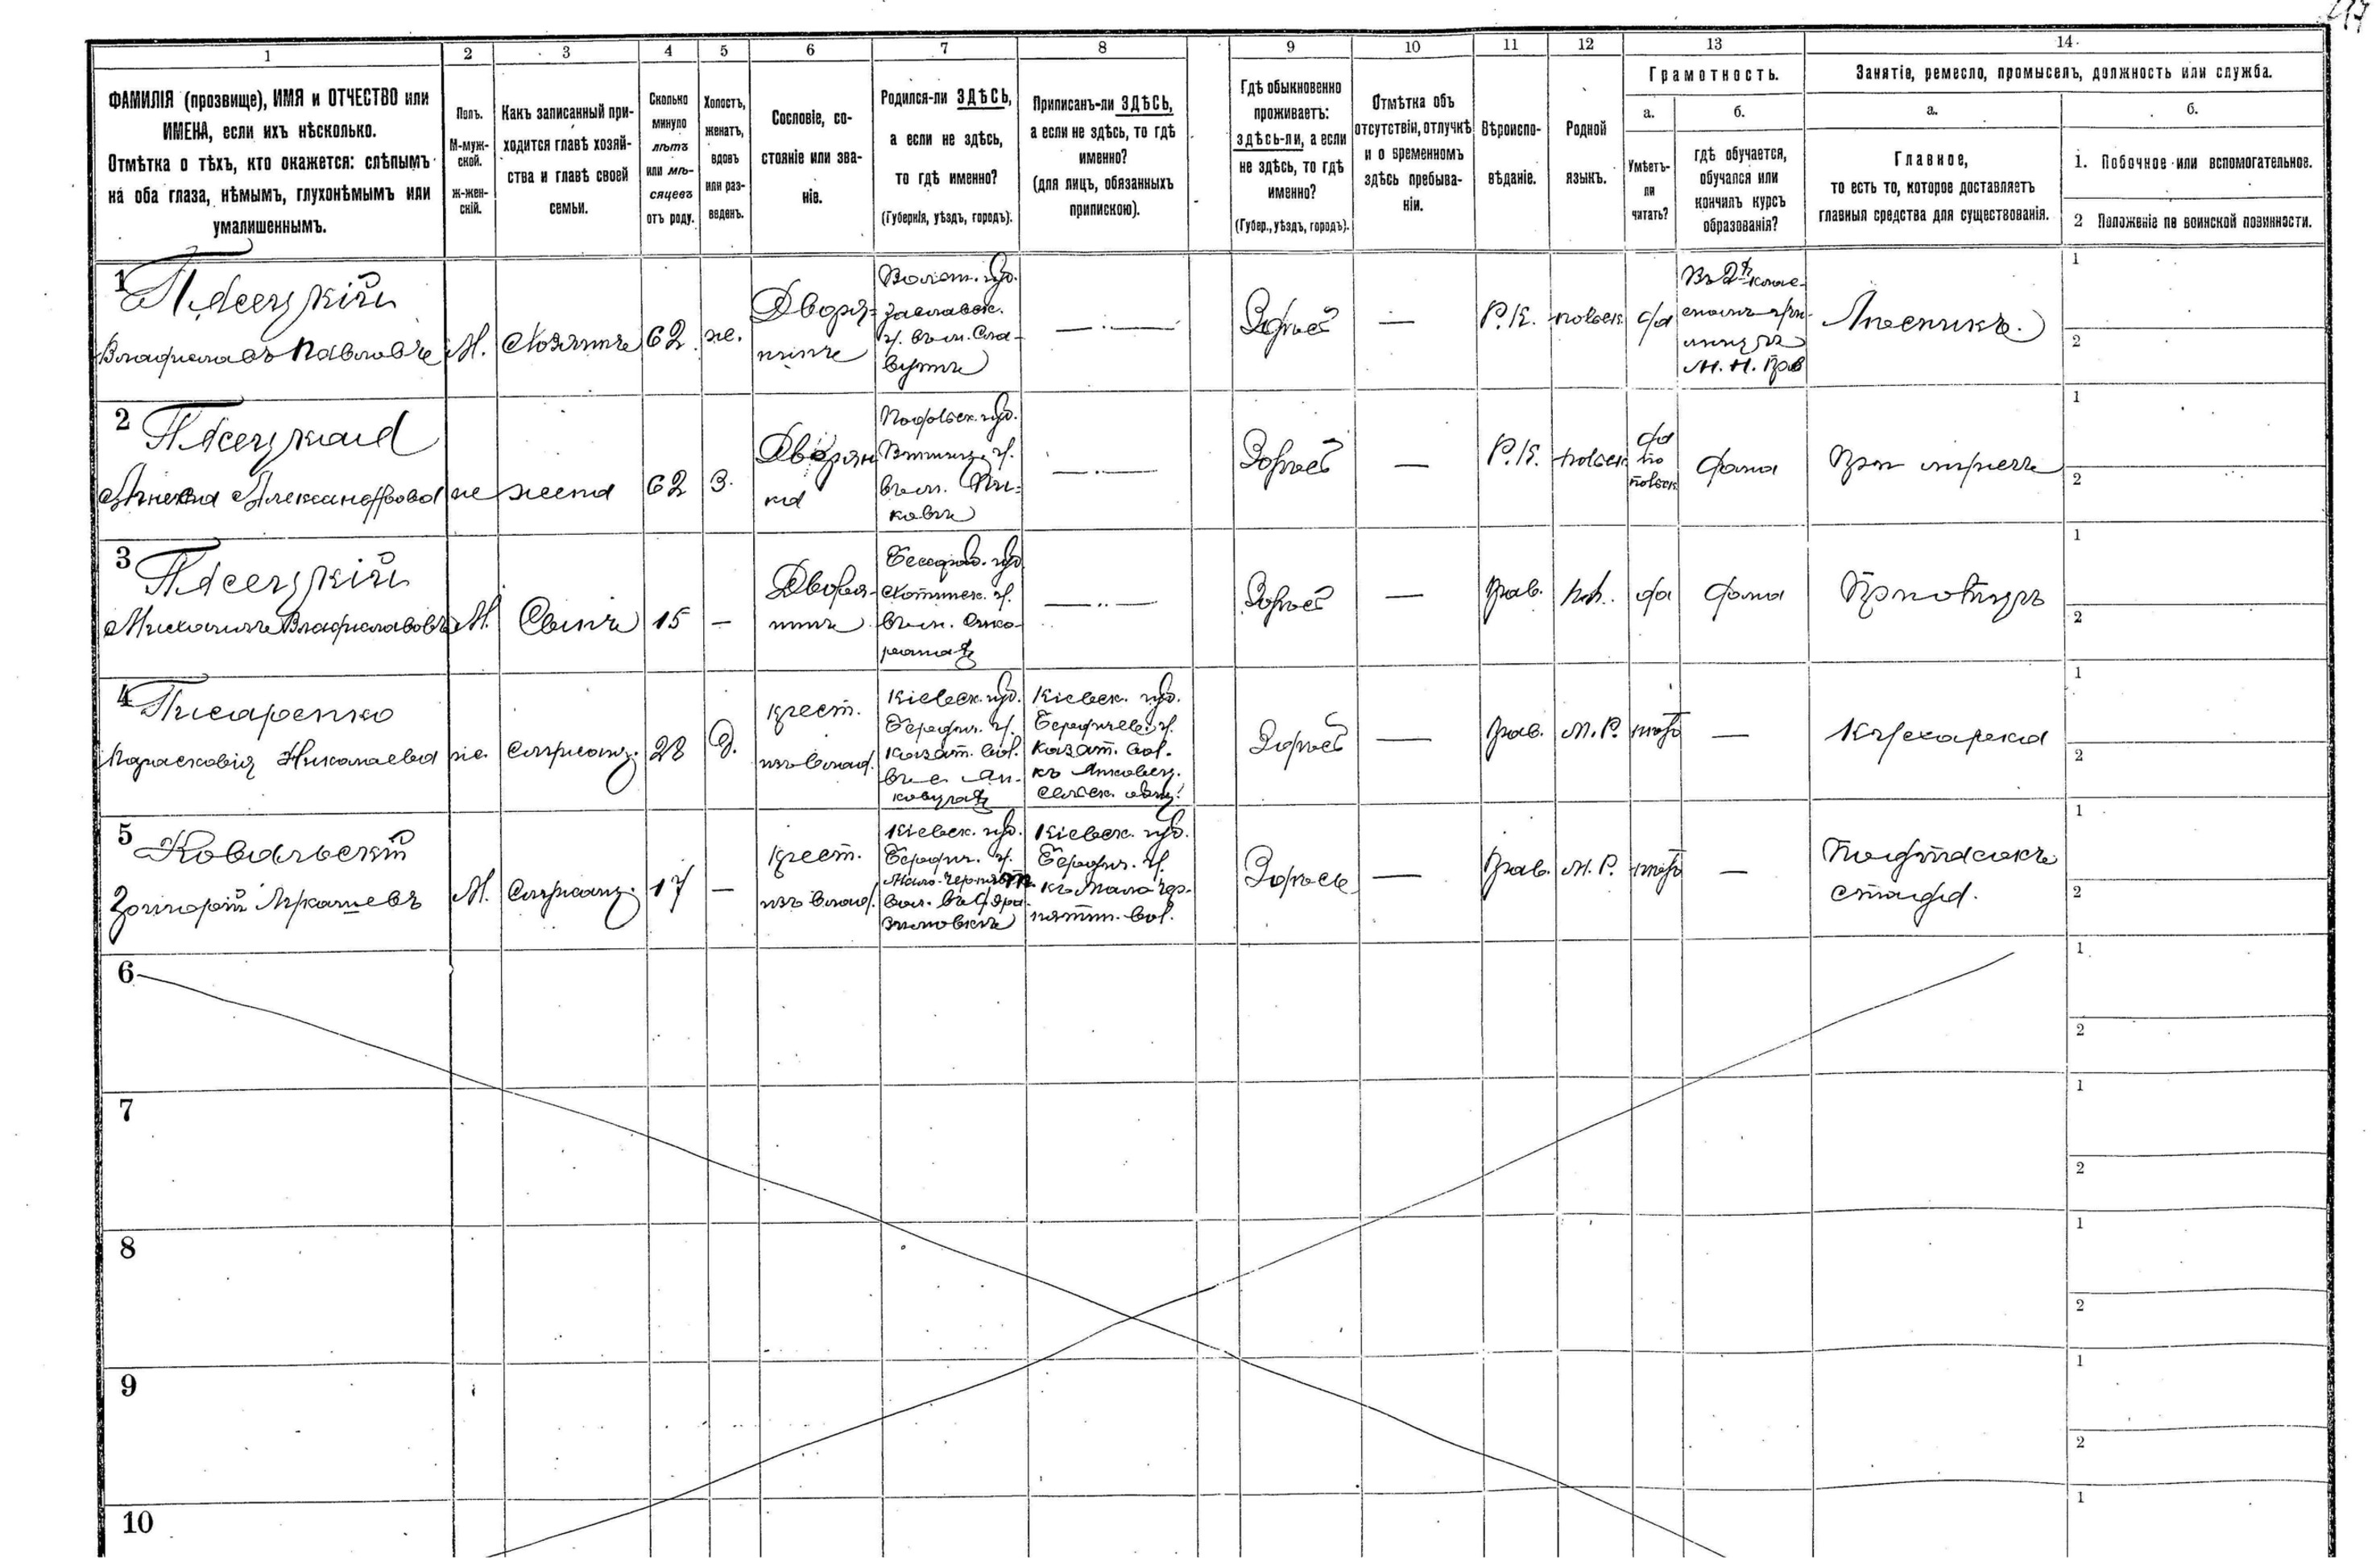 117
1
2
3
4
5
6
7
8
9
10
11
12
13
14
ФАМИЛІЯ (прозвище), ИМЯ и ОТЧЕСТВО или
ИМЕНА, если ихъ нѣсколько.
Отмѣтка о тѣхъ, кто окажется: слѣпымъ
на оба глаза, нѣмымъ, глухонѣмымъ или
умалишеннымъ.
Полъ.
М-муж-
ской.
ж-жен-
скій.
Какъ записанный при-
ходится главѣ хозяй-
ства и главѣ своей
семьи.
Сколько
минуло
лѣтъ
или мѣ-
сяцевъ
отъ роду.
Холостъ,
женатъ,
вдовъ
или раз-
веденъ.
Сословіе, со-
стояніе или зва-
ніе.
Родился-ли ЗДѢСЬ,
а если не здѣсь,
то гдѣ именно?
(Губернія, уѣздъ, городъ).
Приписанъ-ли ЗДѢСЬ,
а если не здѣсь, то гдѣ
именно?
(для лицъ, обязанныхъ
припискою).
Гдѣ обыкновенно
проживаетъ:
здѣсь-ли, а если
не здѣсь, то гдѣ
именно?
(Губер., уѣздъ, городъ).
Отмѣтка объ
отсутствіи, отлучкѣ
и о временномъ
здѣсь пребыва-
ніи.
Вѣроиспо-
вѣданіе.
Родной
языкъ.
Грамотность.
а.
Умѣетъ-
ли
читать?
б.
гдѣ обучается,
обучался или
кончилъ курсъ
образованія?
Занятіе, ремесло, промыселъ, должность или служба.
а.
Главное,
то есть то, которое доставляетъ
главныя средства для существованія.
б.
1. Побочное или вспомогательное.
2 Положеніе по воинской повинности.
1
Пясецкій
Владиславъ Павловъ
М.
Хозяинъ
62
ж.
Дворя-
нинъ
Волын. губ.
Заславск.
у. въ м. Сла-
вутѣ
— . —
Здѣсь
—
Р. К.
польск.
да
Лѣсникъ.
1
2
2
Пясецкая
Александрова
ж
жена
62
З.
Дворян
ка
Подольск. губ.
Винниц. у.
въ м. Пи-
ковѣ
— . —
Здѣсь
—
Р. К.
польск.
да
по
польск
дома
При мужѣ
1
2
3
Пясецкій
Михаилъ Владиславовъ
М.
Сынъ
15
—
Дворя-
нинъ
Бессараб. губ
Хотинск. у.
— .. —
Здѣсь
—
Прав.
пол.
да
дома
При отцѣ
1
2
4
Писаренко
Парасковія Николаева
ж.
служанц.
28
Д.
крест.
изъ влад.
Кіевск. губ.
Бердич. у.
Казат. вол.
Кіевск. губ.
Бердичев. у.
Казат. вол.
Здѣсь
—
Прав.
М. Р.
нѣтъ
—
Кухарка
1
2
5
Ковальскій
Григорій Лукашевъ
М.
служанц.
17
—
крест.
изъ влад.
Кіевск. губ.
Бердич. у.
Кіевск. губ.
Бердич. у.
Здѣсь
—
Прав.
М. Р.
нѣтъ
—
Подпасокъ
стада.
1
2
6
1
2
7
1
2
8
1
2
9
1
2
10
1